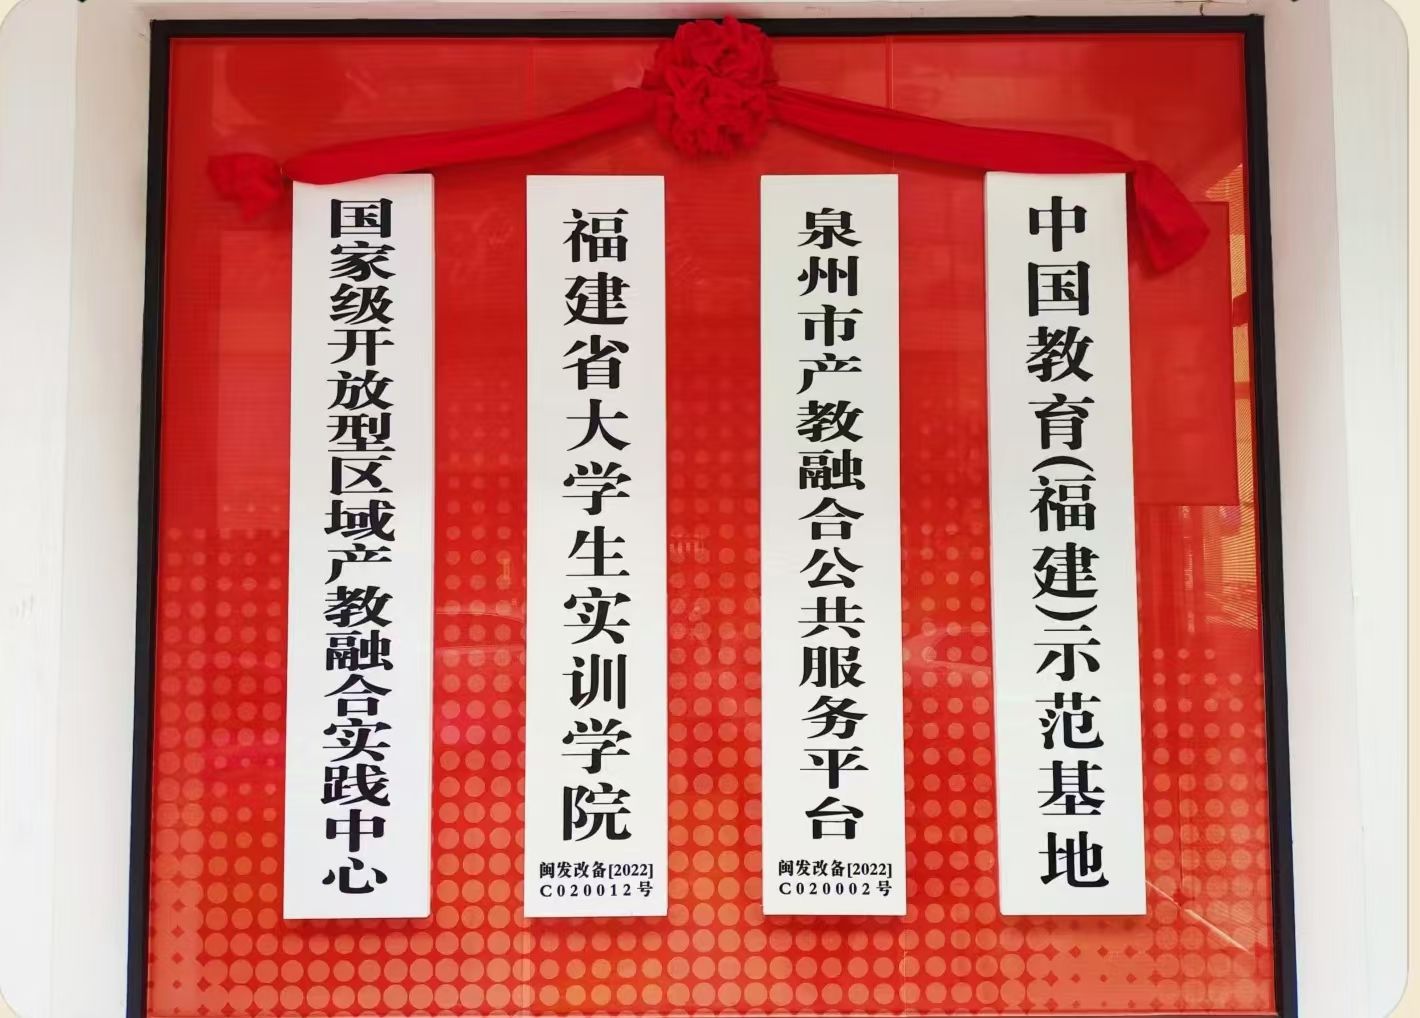 国家级开放型区域产教融合实践中心
福建省大学生实训学院
闽发改备[2022]
C020012号
泉州市产教融合公共服务平台
闽发改备[2022]
C020002号
中国教育(福建)示范基地